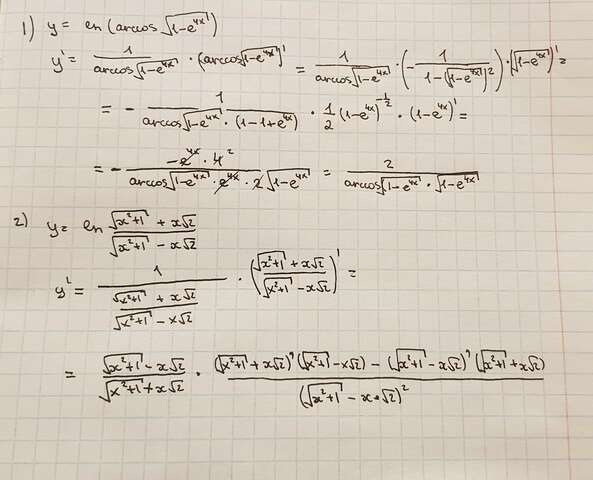 1) y = ln(arccos√(1-e^(4x)))
y' = 1/(arccos√(1-e^(4x))) · (arccos√(1-e^(4x)))' = 1/(arccos√(1-e^(4x))) · (-1/(1-(√(1-e^(4x)))^2)) · (√(1-e^(4x)))' =
= - 1/(arccos√(1-e^(4x)) · (1-1+e^(4x))) · 1/2 (1-e^(4x))^(-1/2) · (1-e^(4x))' =
= - (-e^(4x) · 4^2)/(arccos√(1-e^(4x)) · e^(4x) · 2√(1-e^(4x))) = 2/(arccos√(1-e^(4x)) · √(1-e^(4x)))
2) y = ln (√(x^2+1) + x√2)/(√(x^2+1) - x√2)
y' = 1/((√(x^2+1) + x√2)/(√(x^2+1) - x√2)) · ((√(x^2+1) + x√2)/(√(x^2+1) - x√2))' =
= (√(x^2+1) - x√2)/(√(x^2+1) + x√2) · ((√(x^2+1) + x√2)'(√(x^2+1) - x√2) - (√(x^2+1) - x√2)'(√(x^2+1) + x√2))/(√(x^2+1) - x·√2)^2